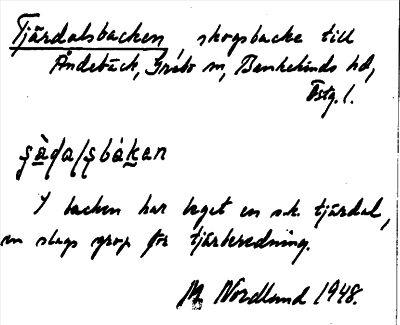 Tjärdalsbacken, skogsbacke till
Åndebäck, Grebo sn, Bankekinds hd,
Östg. l.
I backen har legat en s.k. tjärdal,
en slags grop för tjärberedning.
M Nordlund 1948.